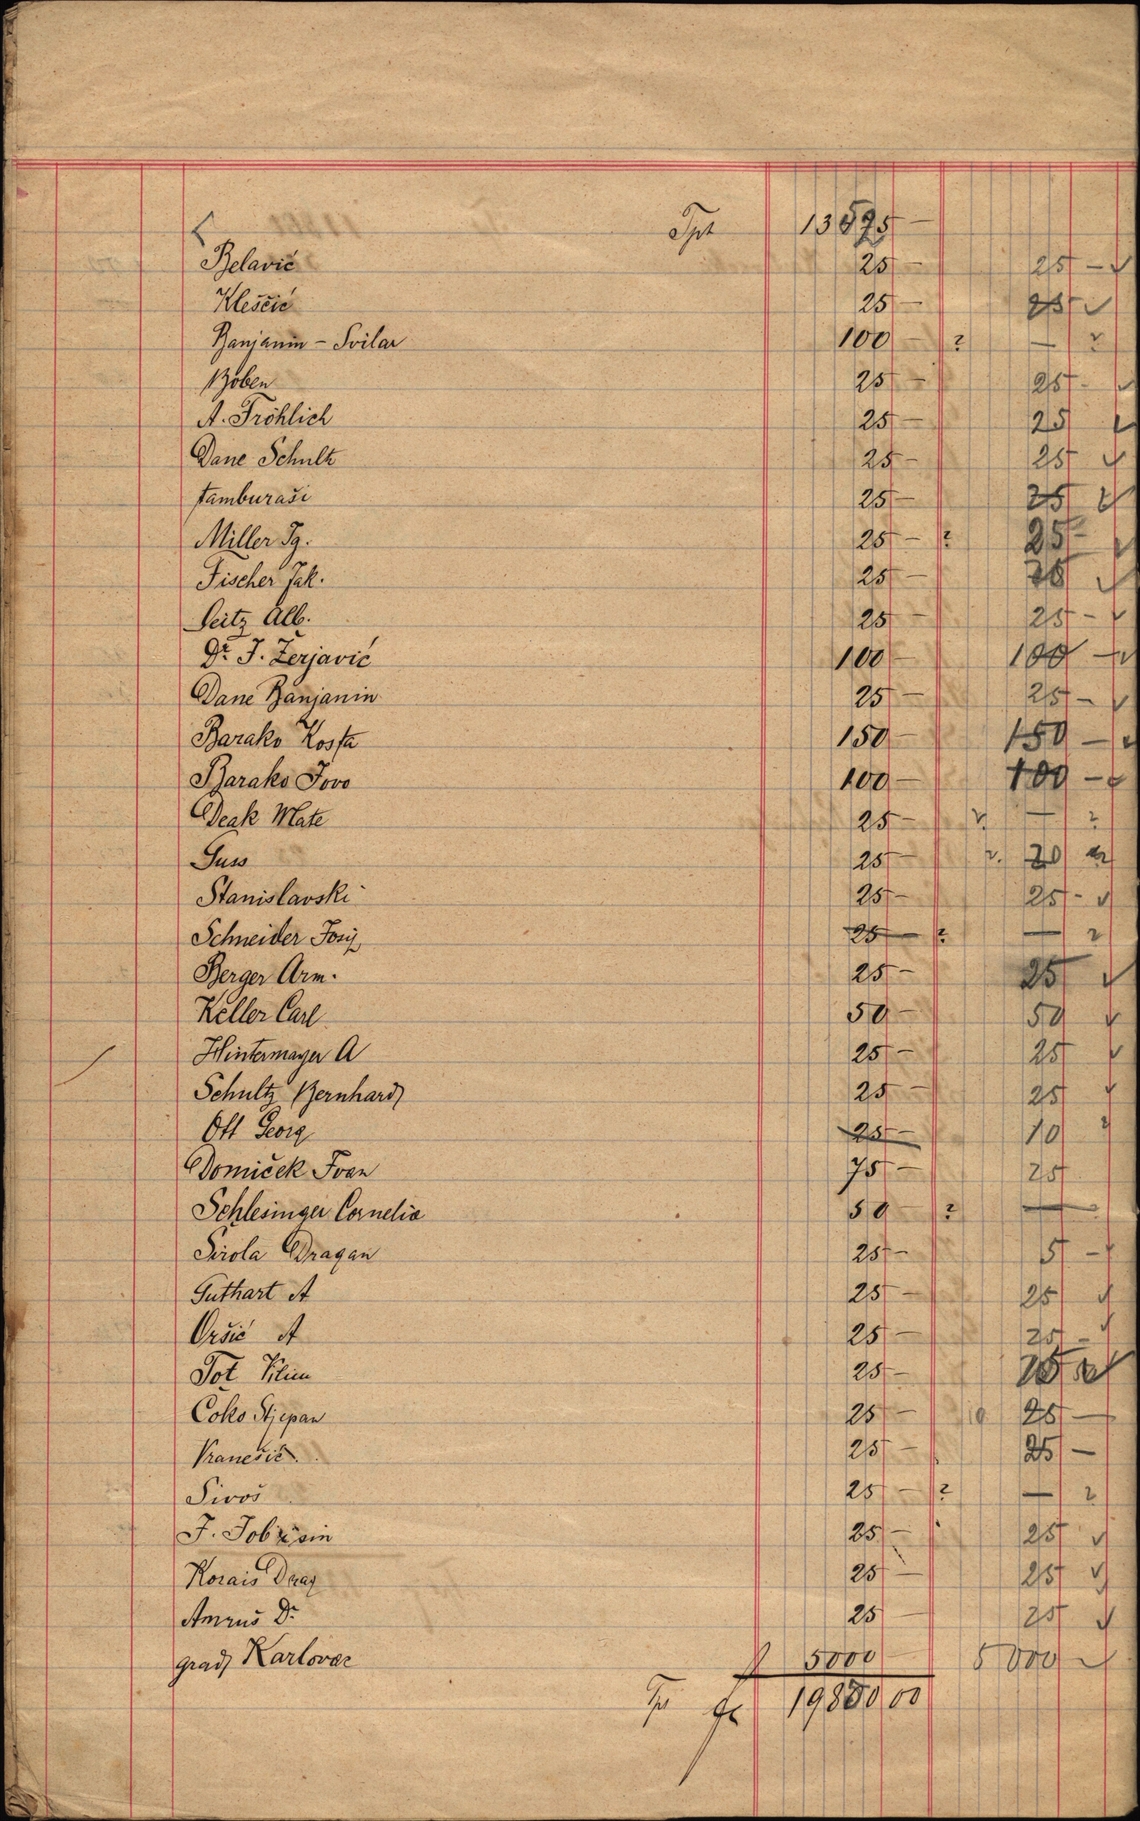 Tpt 13525 —
Belavić 25 — 25 — ✓
Kleščić 25 — 25 ✓
Banjanin – Svilar 100 — ? — ?
Boben 25 — 25 - ✓
A. Fröhlich 25 — 25 ✓
Dane Schultz 25 — 25 ✓
tamburaši 25 — 25 ✓
Miller Ig. 25 — ? 25 - ✓
Fischer Jak. 25 — ✓
Seitz Alb. 25 — 25 - ✓
Dr. J. Žerjavić 100 — 100 — ✓
Dane Banjanin 25 — 25 - ✓
Barako Kosta 150 — 150 — ✓
Barako Jovo 100 — 100 — ✓
Deak Mate 25 — ?. — ?
Guss 25 — ?. 20
Stanislavski 25 — 25 - ✓
Schneider Josip 25 — ? — ?
Berger Arm. 25 — 25 ✓
Keller Carl 50 — 50 ✓
Hintermayer A 25 — 25 ✓
Schultz Bernhard 25 — 25 ✓
Ott Georg 25 — 10 ?
Domiček Ivan 75 — 25
Schlesinger Cornelia 50 — ? —
Širola Dragan 25 — 5 — ✓
Guthart A 25 — 25 ✓
Oršić A 25 — 25 - ✓
Tot Vilim 25 — ✓
Čoko Stjepan 25 — 10 25 —
Vranešić 25 — 25 —
Sivoš 25 — ? — ?
25 — 25 ✓
Korais Drag 25 — 25 ✓
Amruš Dr 25 — 25 ✓
grad Karlovac 5000 — 5000 ✓
Tpt 19850 00